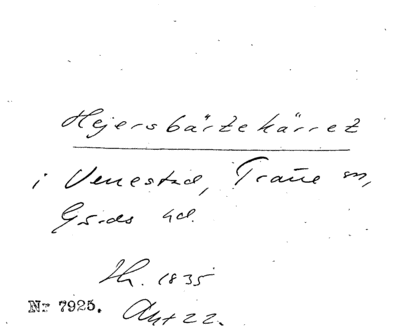 Hejersbärzekärret
i Venestad, Träne sn,
Gärds hd.
Th. 1835
Nr 7925. Akt 22.